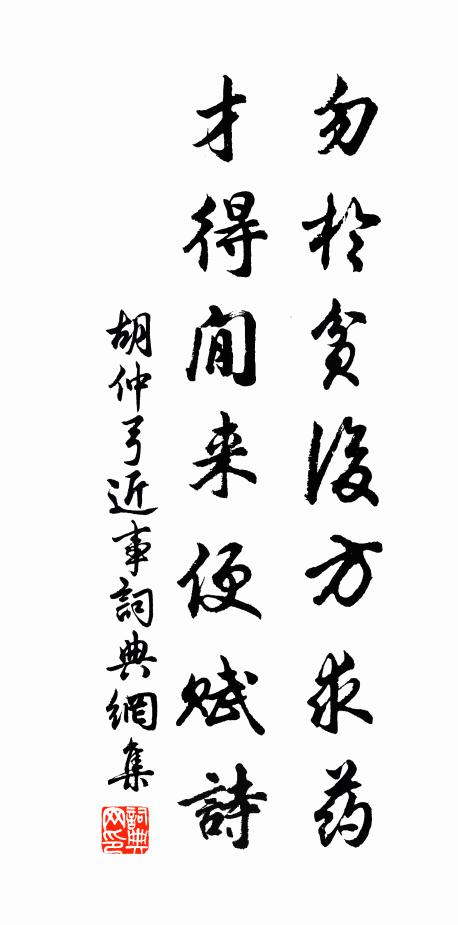 勿於貧後方求药
才得閒来便赋詩
胡仲弓近事詞典網集
詞典网印